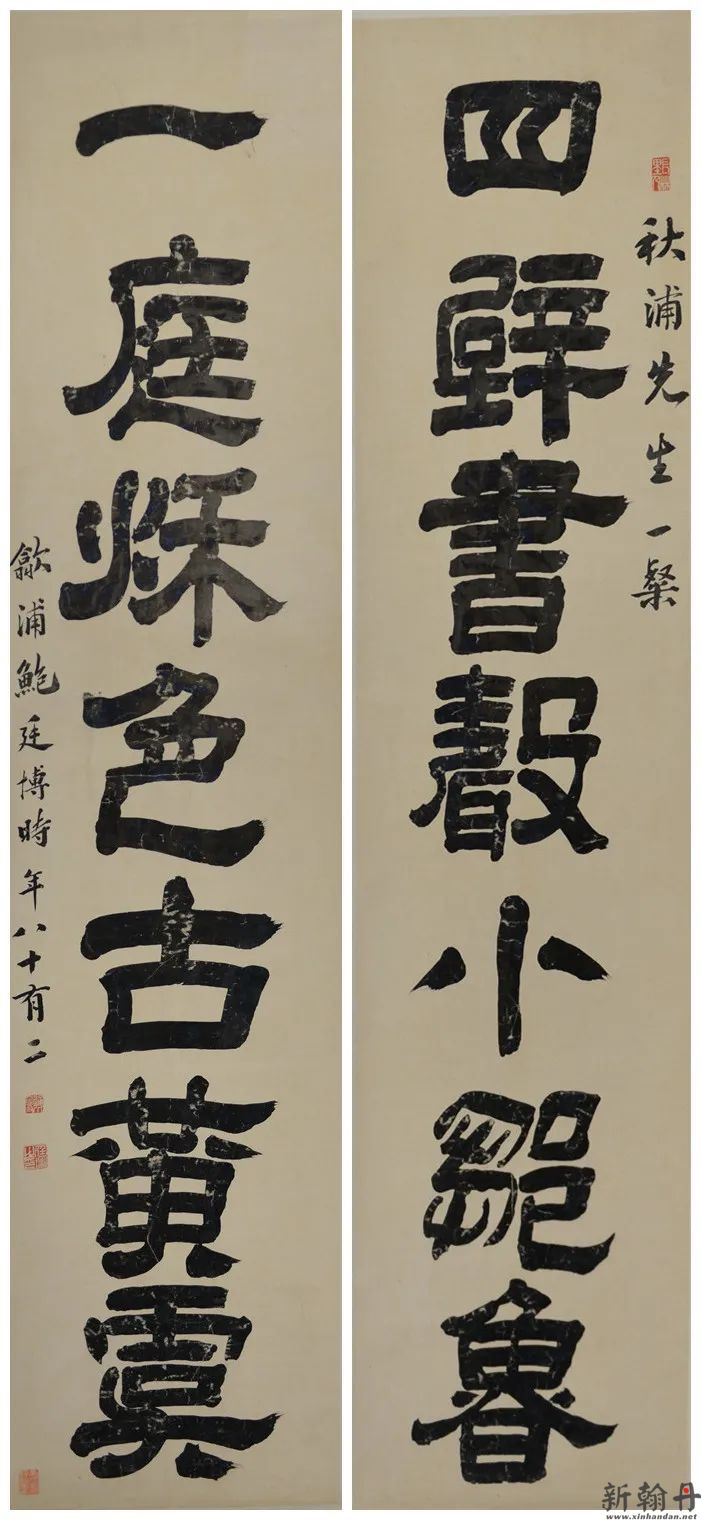 秋浦先生一粲
四壁書聲小鄒魯
一庭秌色古黃虞
歙浦鮑廷博時年八十有二
新翰丹
www.xinhandan.net